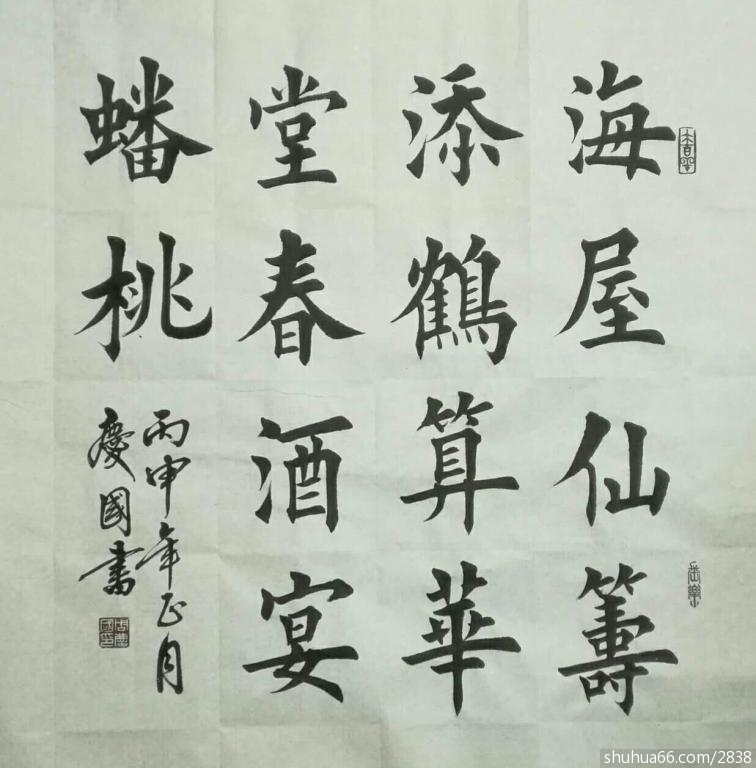 海屋仙籌
添鶴算華
堂春酒宴
蟠桃
丙申年正月
慶國書
shuhua66.com/2838